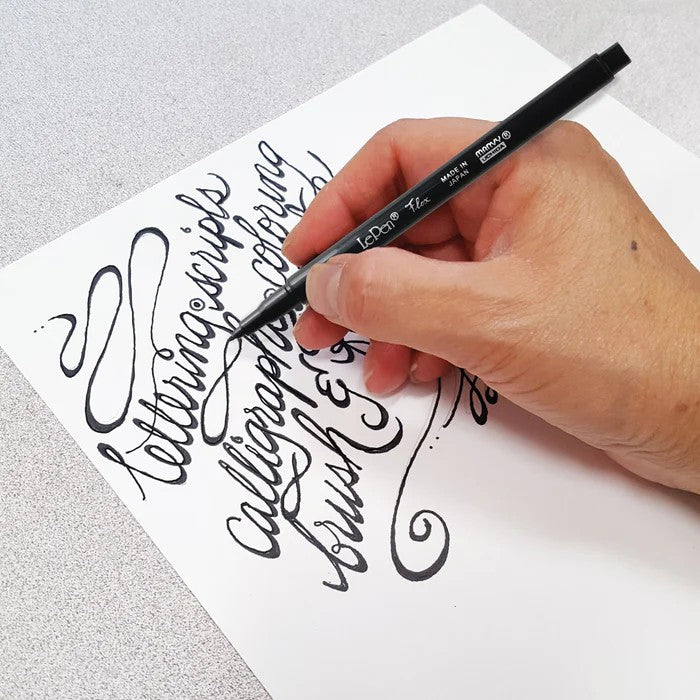 lettering scripts
calligraphy coloring
brush &
LePen® Flex
MADE IN
JAPAN
MARVY®
UCHIDA